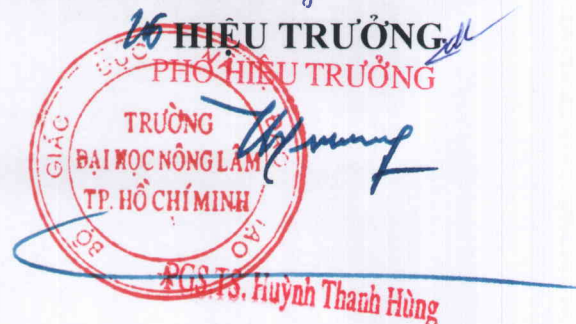 HIỆU TRƯỞNG
PHÓ HIỆU TRƯỞNG
BỘ GIÁO DỤC VÀ ĐÀO TẠO
TRƯỜNG
ĐẠI HỌC NÔNG LÂM
TP. HỒ CHÍ MINH
PGS.TS. Huỳnh Thanh Hùng